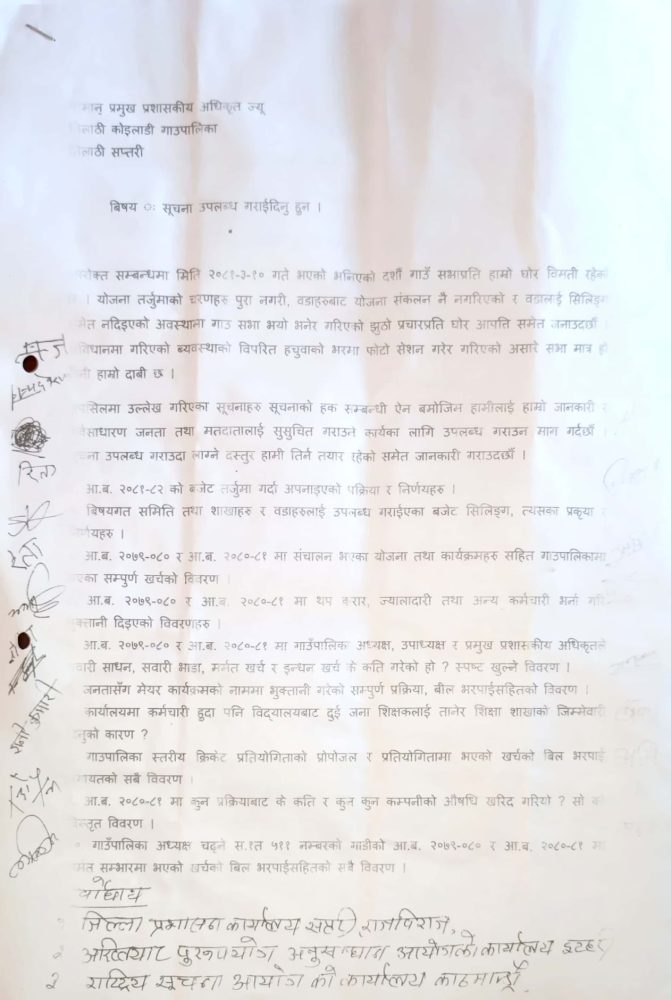 मान् प्रमुख प्रशासकीय अधिकृत ज्यू
लाठी कोइलाडी गाउपालिका
लाठी सप्तरी
बिषय ः सूचना उपलब्ध गराईदिनु हुन ।
रोक्त सम्बन्धमा मिति २०८१-३-१० गते भएको भनिएको दशौं गाउँ सभाप्रति हाम्रो घोर विमती रहेको
। योजना तर्जुमाको चरणहरु पुरा नगरी, वडाहरुबाट योजना संकलन नै नगरिएको र वडालाई सिलिङ्ग
मेत नदिइएको अवस्थामा गाउ सभा भयो भनेर गरिएको झुठो प्रचारप्रति घोर आपत्ति समेत जनाउदछौं ।
विधानमा गरिएको ब्यवस्थाको विपरित हचुवाको भरमा फोटो सेशन गरेर गरिएको असारे सभा मात्र हो
नी हाम्रो दाबी छ ।
पसिलमा उल्लेख गरिएका सूचनाहरु सूचनाको हक सम्बन्धी ऐन बमोजिम हामीलाई हाम्रो जानकारी र
र्वसाधारण जनता तथा मतदातालाई सुसुचित गराउने कार्यका लागि उपलब्ध गराउन माग गर्दछौं ।
चना उपलब्ध गराउदा लाग्ने दस्तुर हामी तिर्न तयार रहेको समेत जानकारी गराउदछौं ।
आ.ब. २०८१-८२ को बजेट तर्जुमा गर्दा अपनाइएको पक्रिया र निर्णयहरु ।
बिषयगत समिति तथा शाखाहरु र वडाहरुलाई उपलब्ध गराईएका बजेट सिलिङ्ग, त्यसका प्रकृया र
र्णयहरु ।
आ.ब. २०७९-०८० र आ.ब. २०८०-८१ मा संचालन भएका योजना तथा कार्यक्रमहरु सहित गाउपालिकामा
एका सम्पुर्ण खर्चको विवरण ।
आ.ब. २०७९-०८० र आ.ब. २०८०-८१ मा थप करार, ज्यालादारी तथा अन्य कर्मचारी भर्ना गरि
क्तानी दिइएको विवरणहरु ।
आ.ब. २०७९-०८० र आ.ब. २०८०-८१ मा गाउँपालिक अध्यक्ष, उपाध्यक्ष र प्रमुख प्रशासकीय अधिकृतले
वारी साधन, सवारी भाडा, मर्मत खर्च र इन्धन खर्च के कति गरेको हो ? स्पष्ट खुल्ने विवरण ।
जनतासँग मेयर कार्यक्रमको नाममा भुक्तानी गरेको सम्पूर्ण प्रक्रिया, बील भरपाईसहितको विवरण ।
कार्यालयमा कर्मचारी हुदा पनि विद्यालयबाट दुई जना शिक्षकलाई तानेर शिक्षा शाखाको जिम्मेवारी
नुको कारण ?
गाउपालिका स्तरीय क्रिकेट प्रतियोगिताको प्रोपोजल र प्रतियोगितामा भएको खर्चको बिल भरपाई
मायतको सबै विवरण ।
आ.ब. २०८०-८१ मा कुन प्रक्रियाबाट के कति र कुन कुन कम्पनीको औषधि खरिद गरियो ? सो को
स्तृत विवरण ।
० गाउँपालिका अध्यक्ष चढ्ने स.१त ५११ नम्बरको गाडीको आ.ब. २०७९-०८० र आ.ब. २०८०-८१ मा
मत सम्भारमा भएको खर्चको बिल भरपाईसहितको सबै विवरण ।
बोधार्थ
जिल्ला प्रशासन कार्यालय सप्तरी, राजविराज,
अख्तियार दुरुपयोग अनुसन्धान आयोगको कार्यालय इटहरी
३ राष्ट्रिय सूचना आयोग को कार्यालय काठमाडौं
रिता